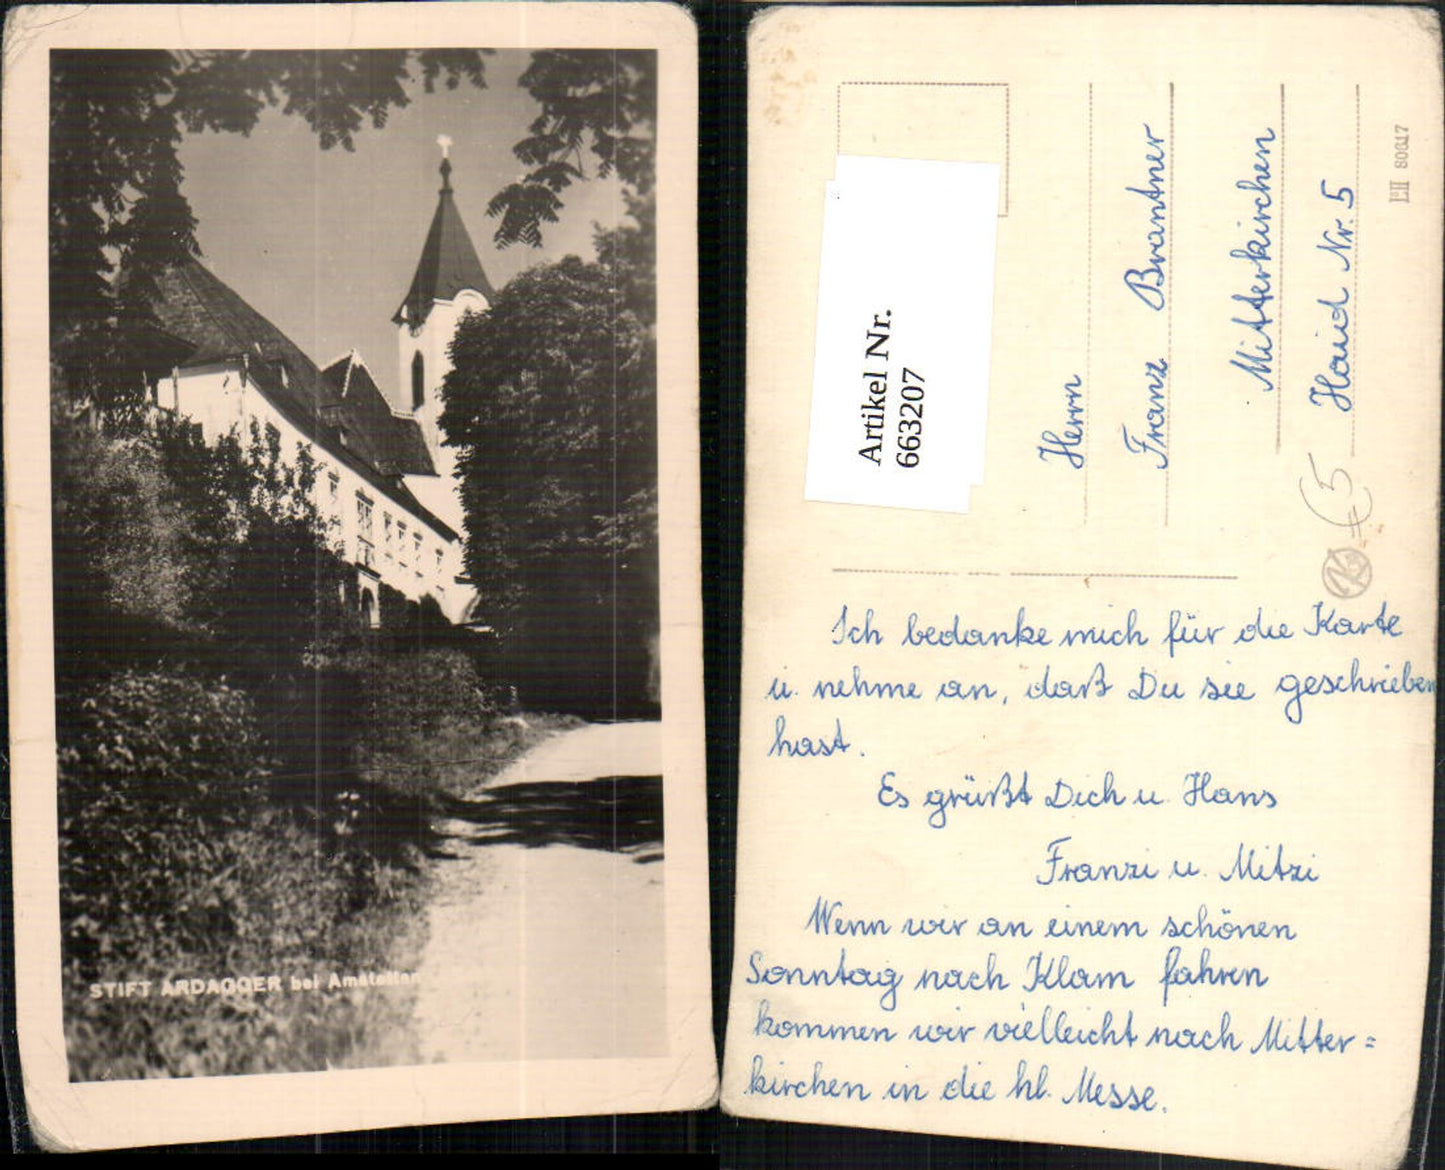 STIFT ARDAGGER bei Amstetten
Artikel Nr.
663207
Herrn
Franz Brantner
Mitterkirchen
Haid Nr. 5
5
Ich bedanke mich für die Karte
u. nehme an, daß Du sie geschrieben
hast.
Es grüßt Dich u. Hans
Franzi u. Mitzi
Wenn wir an einem schönen
Sonntag nach Klam fahren
kommen wir vielleicht nach Mitter=
kirchen in die hl. Messe.